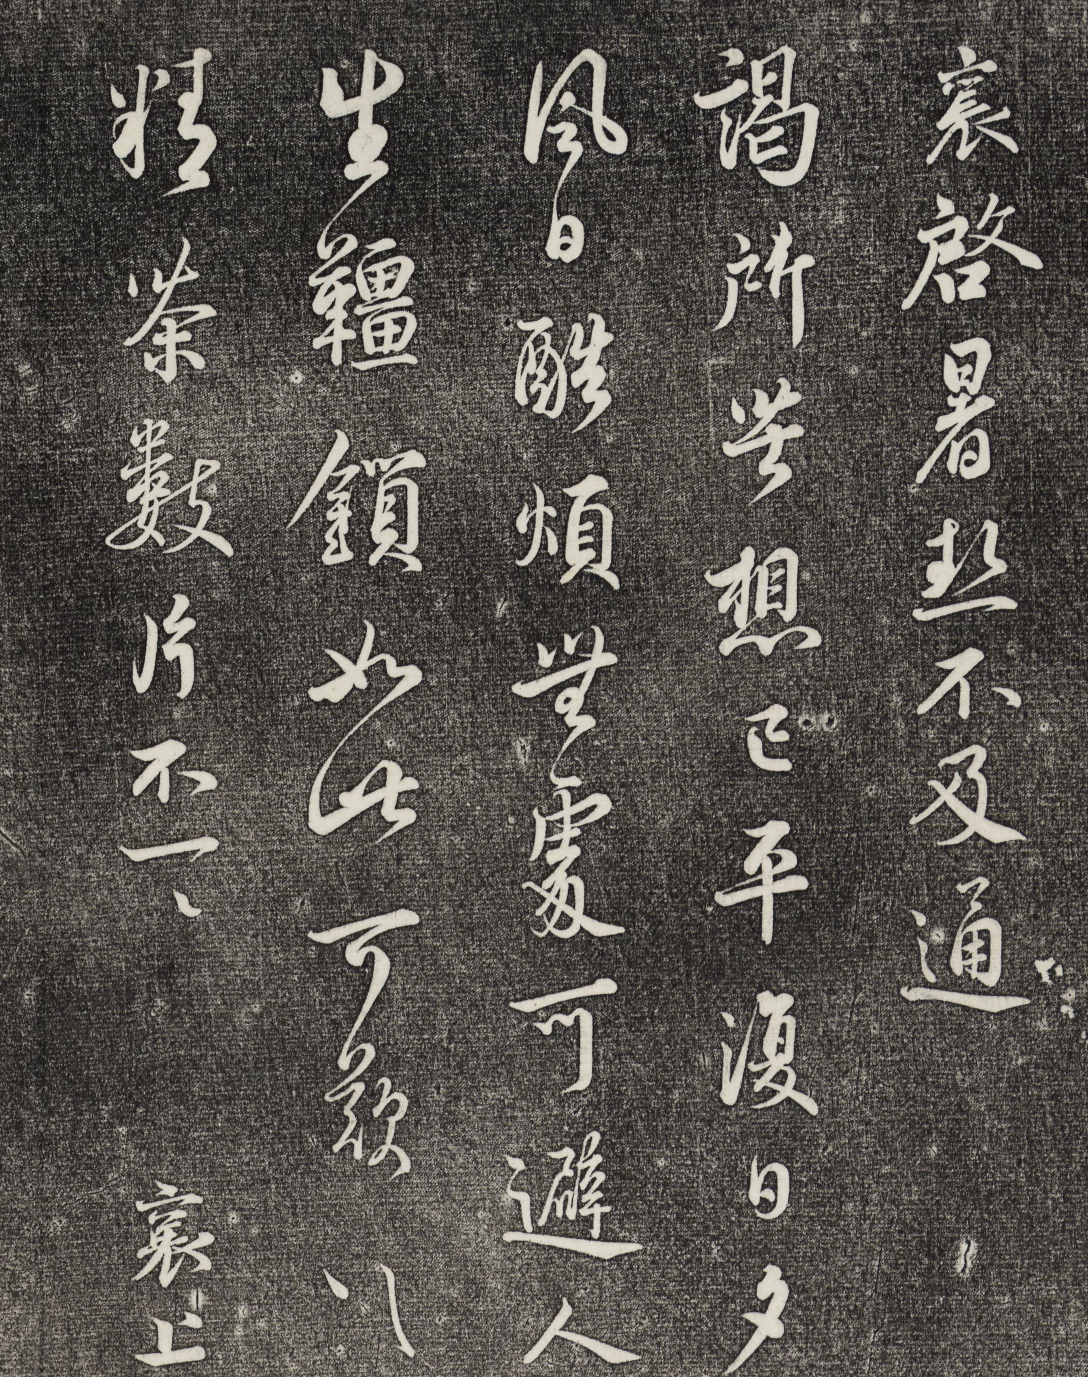 襄啓暑熱不及通
謁所苦想已平復日夕
風日酷煩無處可避人
生韁鎖如此可歎以
精茶數片不一一
襄上